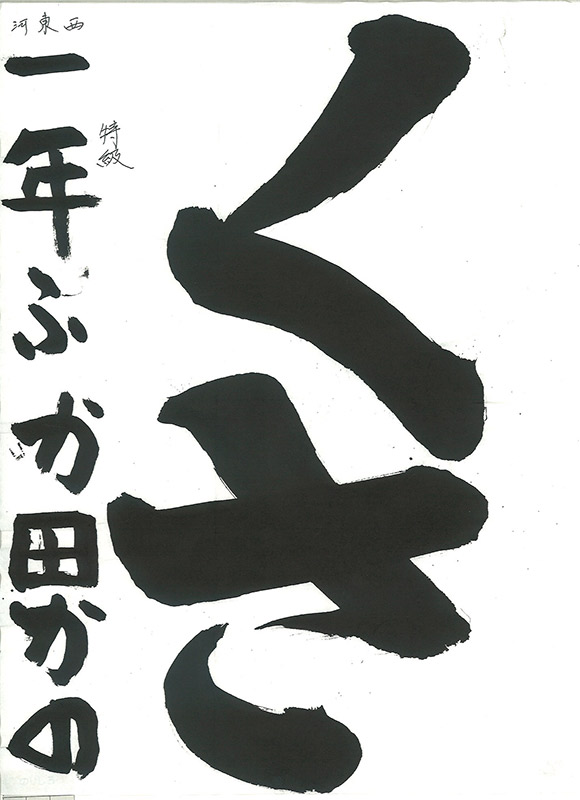 くさ
特級
河東西
一年ふか田かの